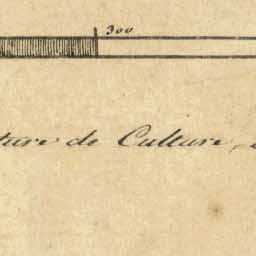 300
ture de Culture,